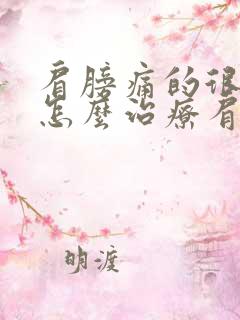 肩膀痛的很
怎麼治療肩
明渡